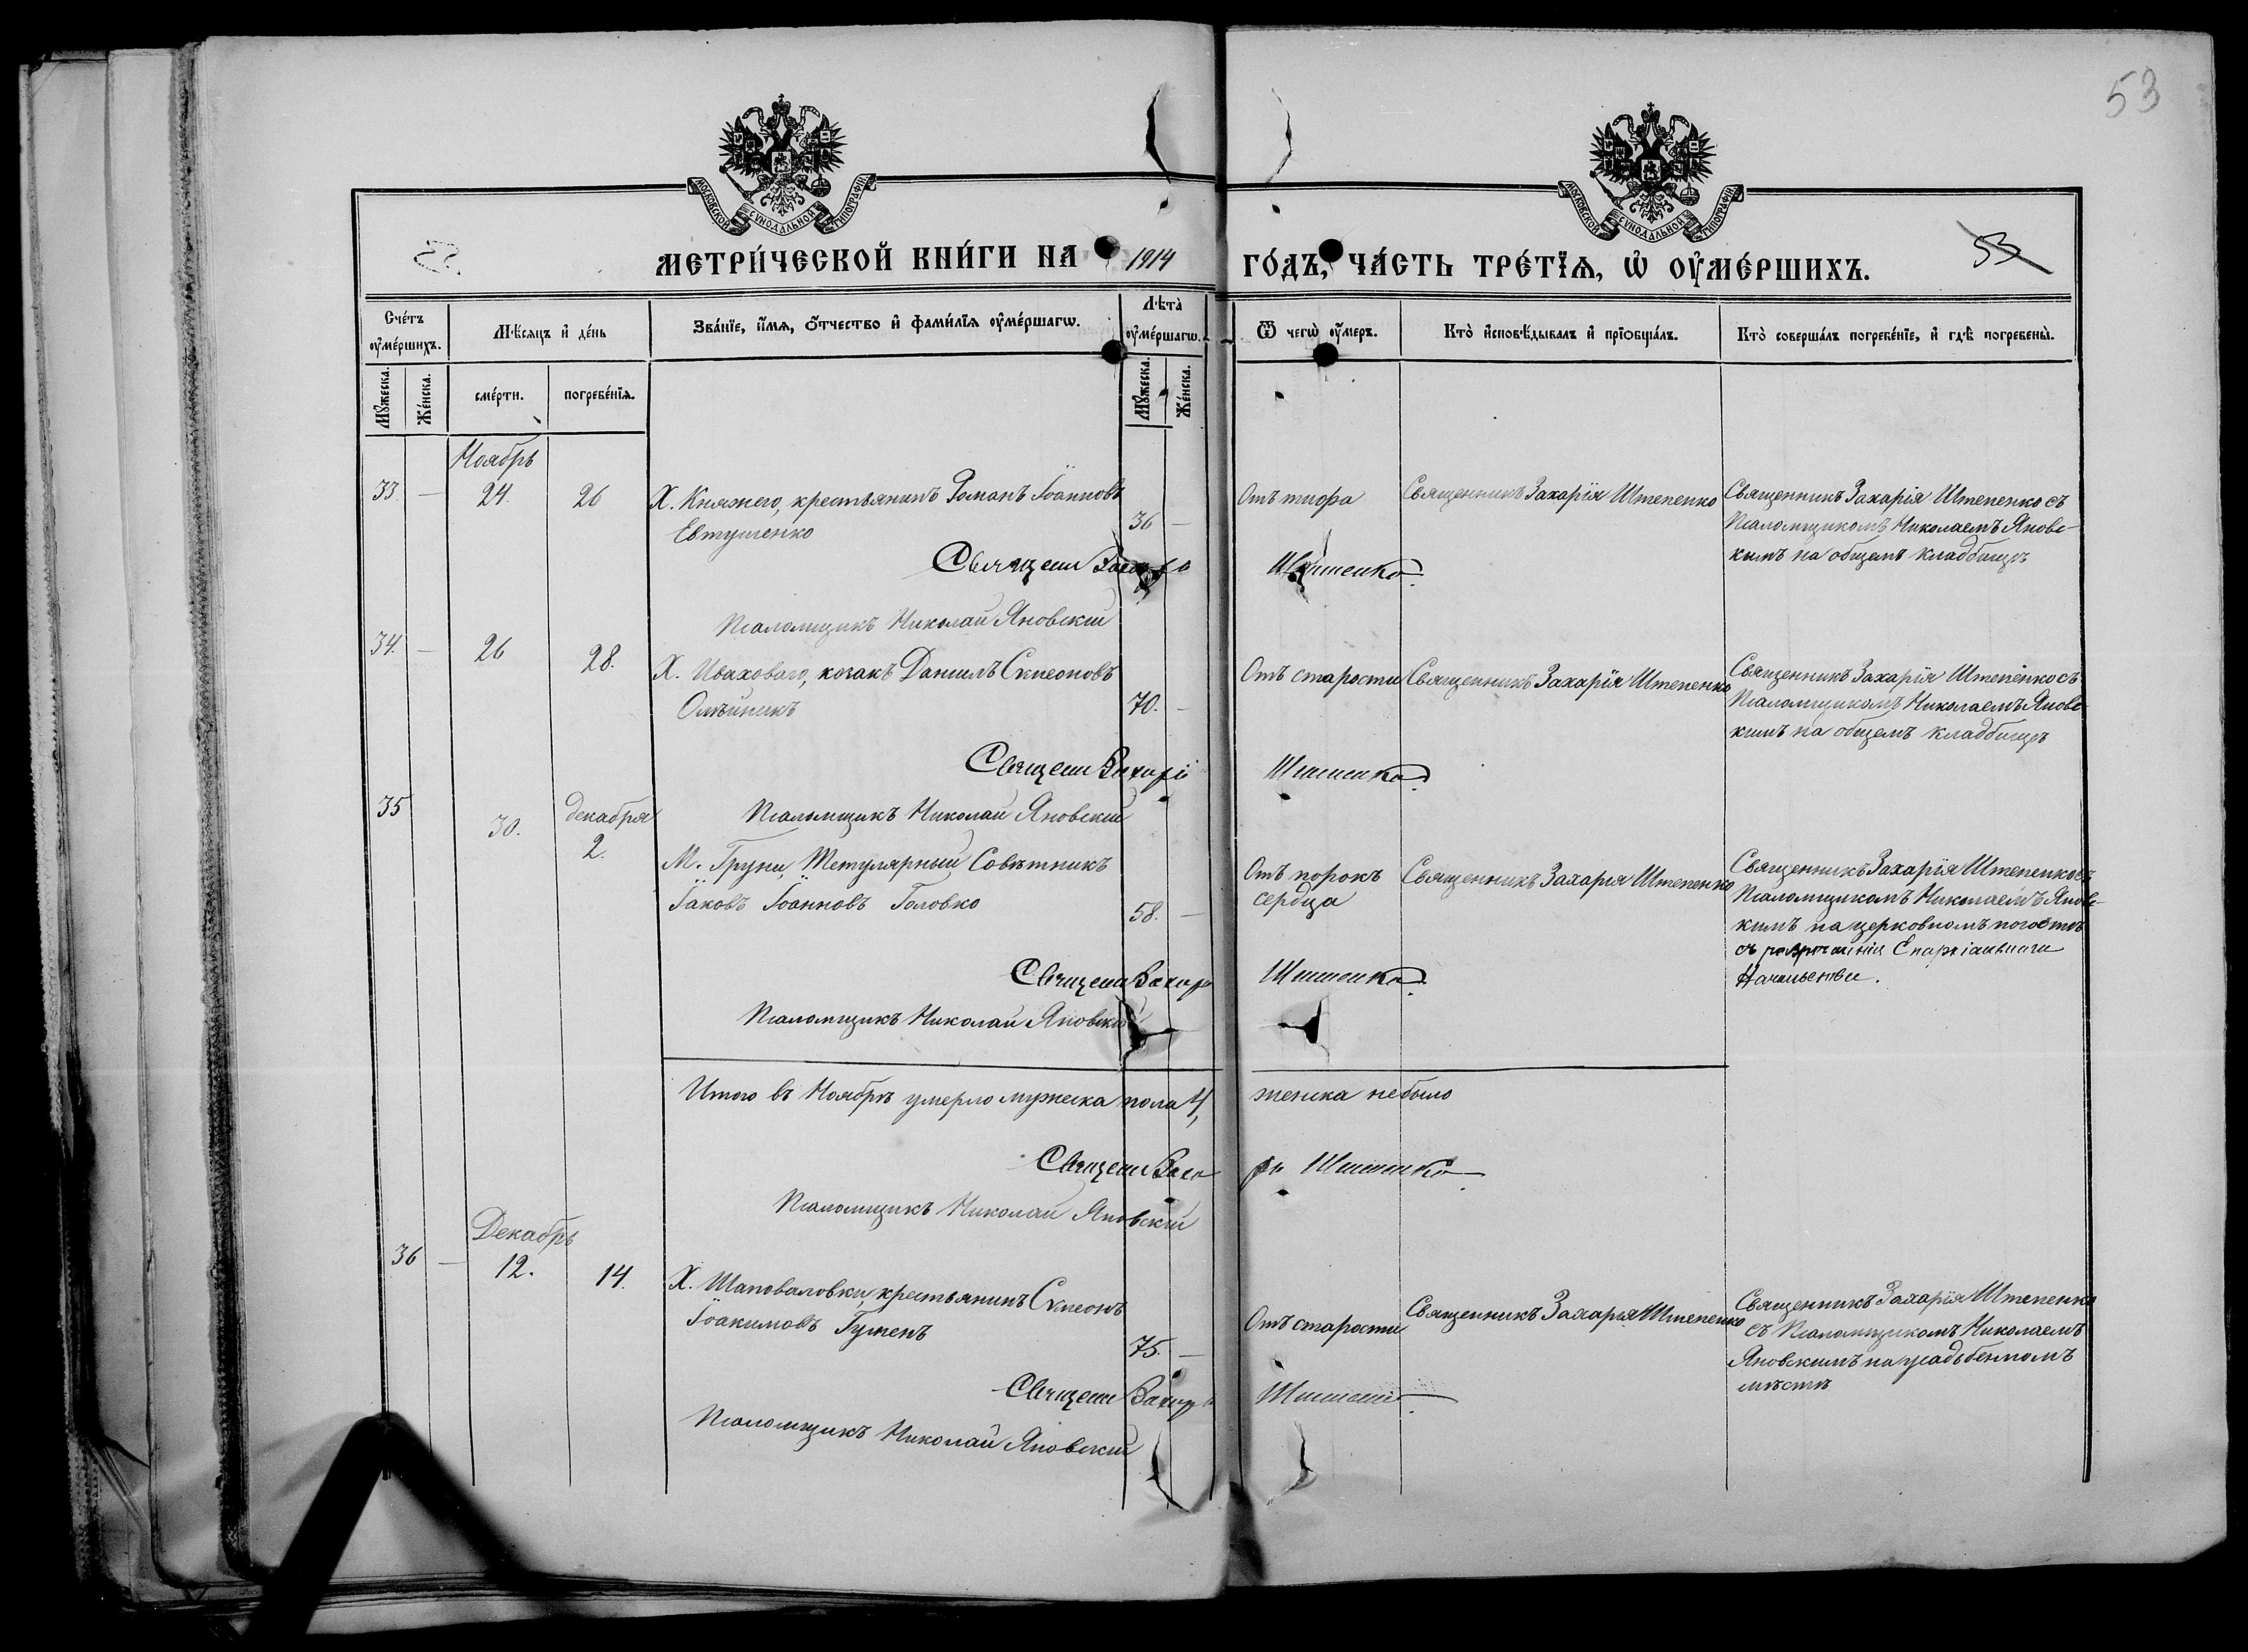 53
МОСКОВСКОЙ СѴНОДАЛЬНОЙ ТИПОГРАФІИ
МОСКОВСКОЙ СѴНОДАЛЬНОЙ ТИПОГРАФІИ
МЕТРИ́ЧЕСКОЙ КНИ́ГИ НА 1914 ГО́ДЪ, ЧА́СТЬ ТРЕ́ТЇѦ, Ѡ҆ ОУ҆МЕ́РШИХЪ.
53
Сче́тъ оу҆ме́ршихъ.
Мѣ́сяцъ и҆ де́нь
Зва́нїе, и҆́мѧ, ѻ҆́тчество и҆ фами́лїѧ оу҆ме́ршагѡ.
Лѣ́та оу҆ме́ршагѡ.
Ѿ чегѡ̀ оу҆́меръ.
Кто̀ и҆сповѣ́дывалъ и҆ прїобща́лъ.
Кто̀ соверша́лъ погребе́нїе, и҆ гдѣ̀ погребены̀.
Мꙋ́жеска.
Же́нска.
сме́рти.
погребе́нїѧ.
Мꙋ́жеска.
Же́нска.
Ноябрь
33. — 24. 26 Х. Княжего, крестьянинъ Романъ Іоанновъ
Евтушенко 36 —
Отъ тифа
Священникъ Захарія Штепенко
Священникъ Захарія Штепенко съ
Псаломщикомъ Николаемъ Яновс-
кимъ на общемъ кладбищѣ
Священ Захарія Штепенко
Псаломщикъ Николай Яновскій
34. — 26 28. Х. Иваховаго, козакъ Даніилъ Сѵмеоновъ
Олѣйникъ 70. —
Отъ старости
Священникъ Захарія Штепенко
Священникъ Захарія Штепенко съ
Псаломщикомъ Николаемъ Яновс-
кимъ на общемъ кладбищѣ
Священ Захарі Штепенко
Псаломщикъ Николай Яновскій
35 30. декабря
2.
М. Груни, Тетулярный Совѣтникъ
Іаковъ Іоанновъ Головко 58. —
Отъ порокъ
сердца
Священникъ Захарія Штепенко
Священникъ Захарія Штепенко съ
Псаломщикомъ Николаемъ Яновс-
кимъ на церковномъ погостѣ
съ разрѣшенія Епархіальнаго
Начальства.
Священ Захарі Штепенко
Псаломщикъ Николай Яновскій
Итого въ Ноябрѣ умерло мужеска пола 4, женска небыло
Священ Захарі Штепенко
Псаломщикъ Николай Яновскій
Декабрь
36 — 12. 14. Х. Шаповаловки, крестьянинъ Сѵмеонъ
Іоакимовъ Гуменъ 75. —
Отъ старости
Священникъ Захарія Штепенко
Священникъ Захарія Штепенко
съ Псаломщикомъ Николаемъ
Яновскимъ на усадьбенномъ
мѣстѣ
Священ Захарі Штепенко
Псаломщикъ Николай Яновскій